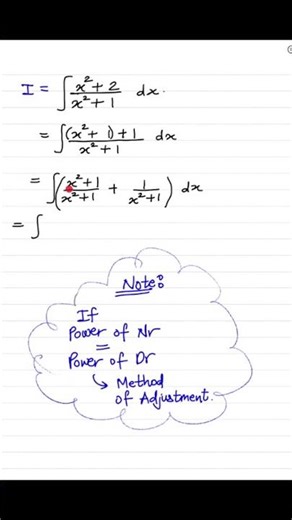 I = ∫ x²+2 / x²+1 dx.
= ∫ (x²+1)+1 / x²+1 dx
= ∫ ( x²+1 / x²+1 + 1 / x²+1 ) dx
= ∫
Note:
If
Power of Nr
=
Power of Dr
↳ Method
of Adjustment.